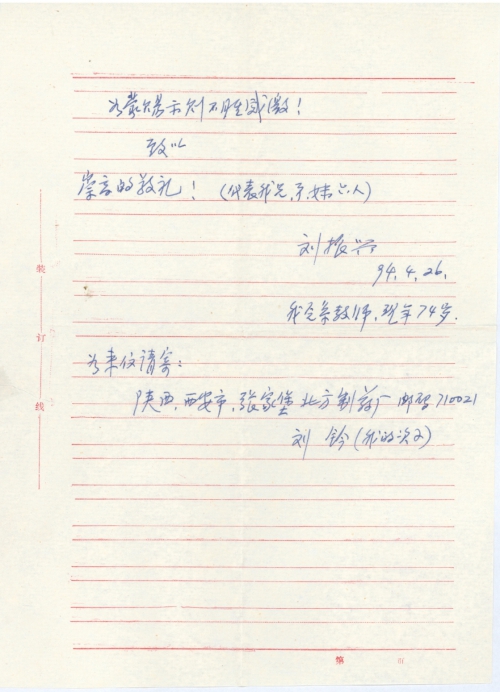 如蒙賜示则不胜感激！
致以
崇高的敬礼！（代表我兄、弟、妹六人）
刘振兴
94.4.26.
我充条教师，现年74岁.
如来信请寄：
陕西，西安市，张家堡北方制药厂 邮码710021
刘 铃（我的次子）
装
订
线
第 页